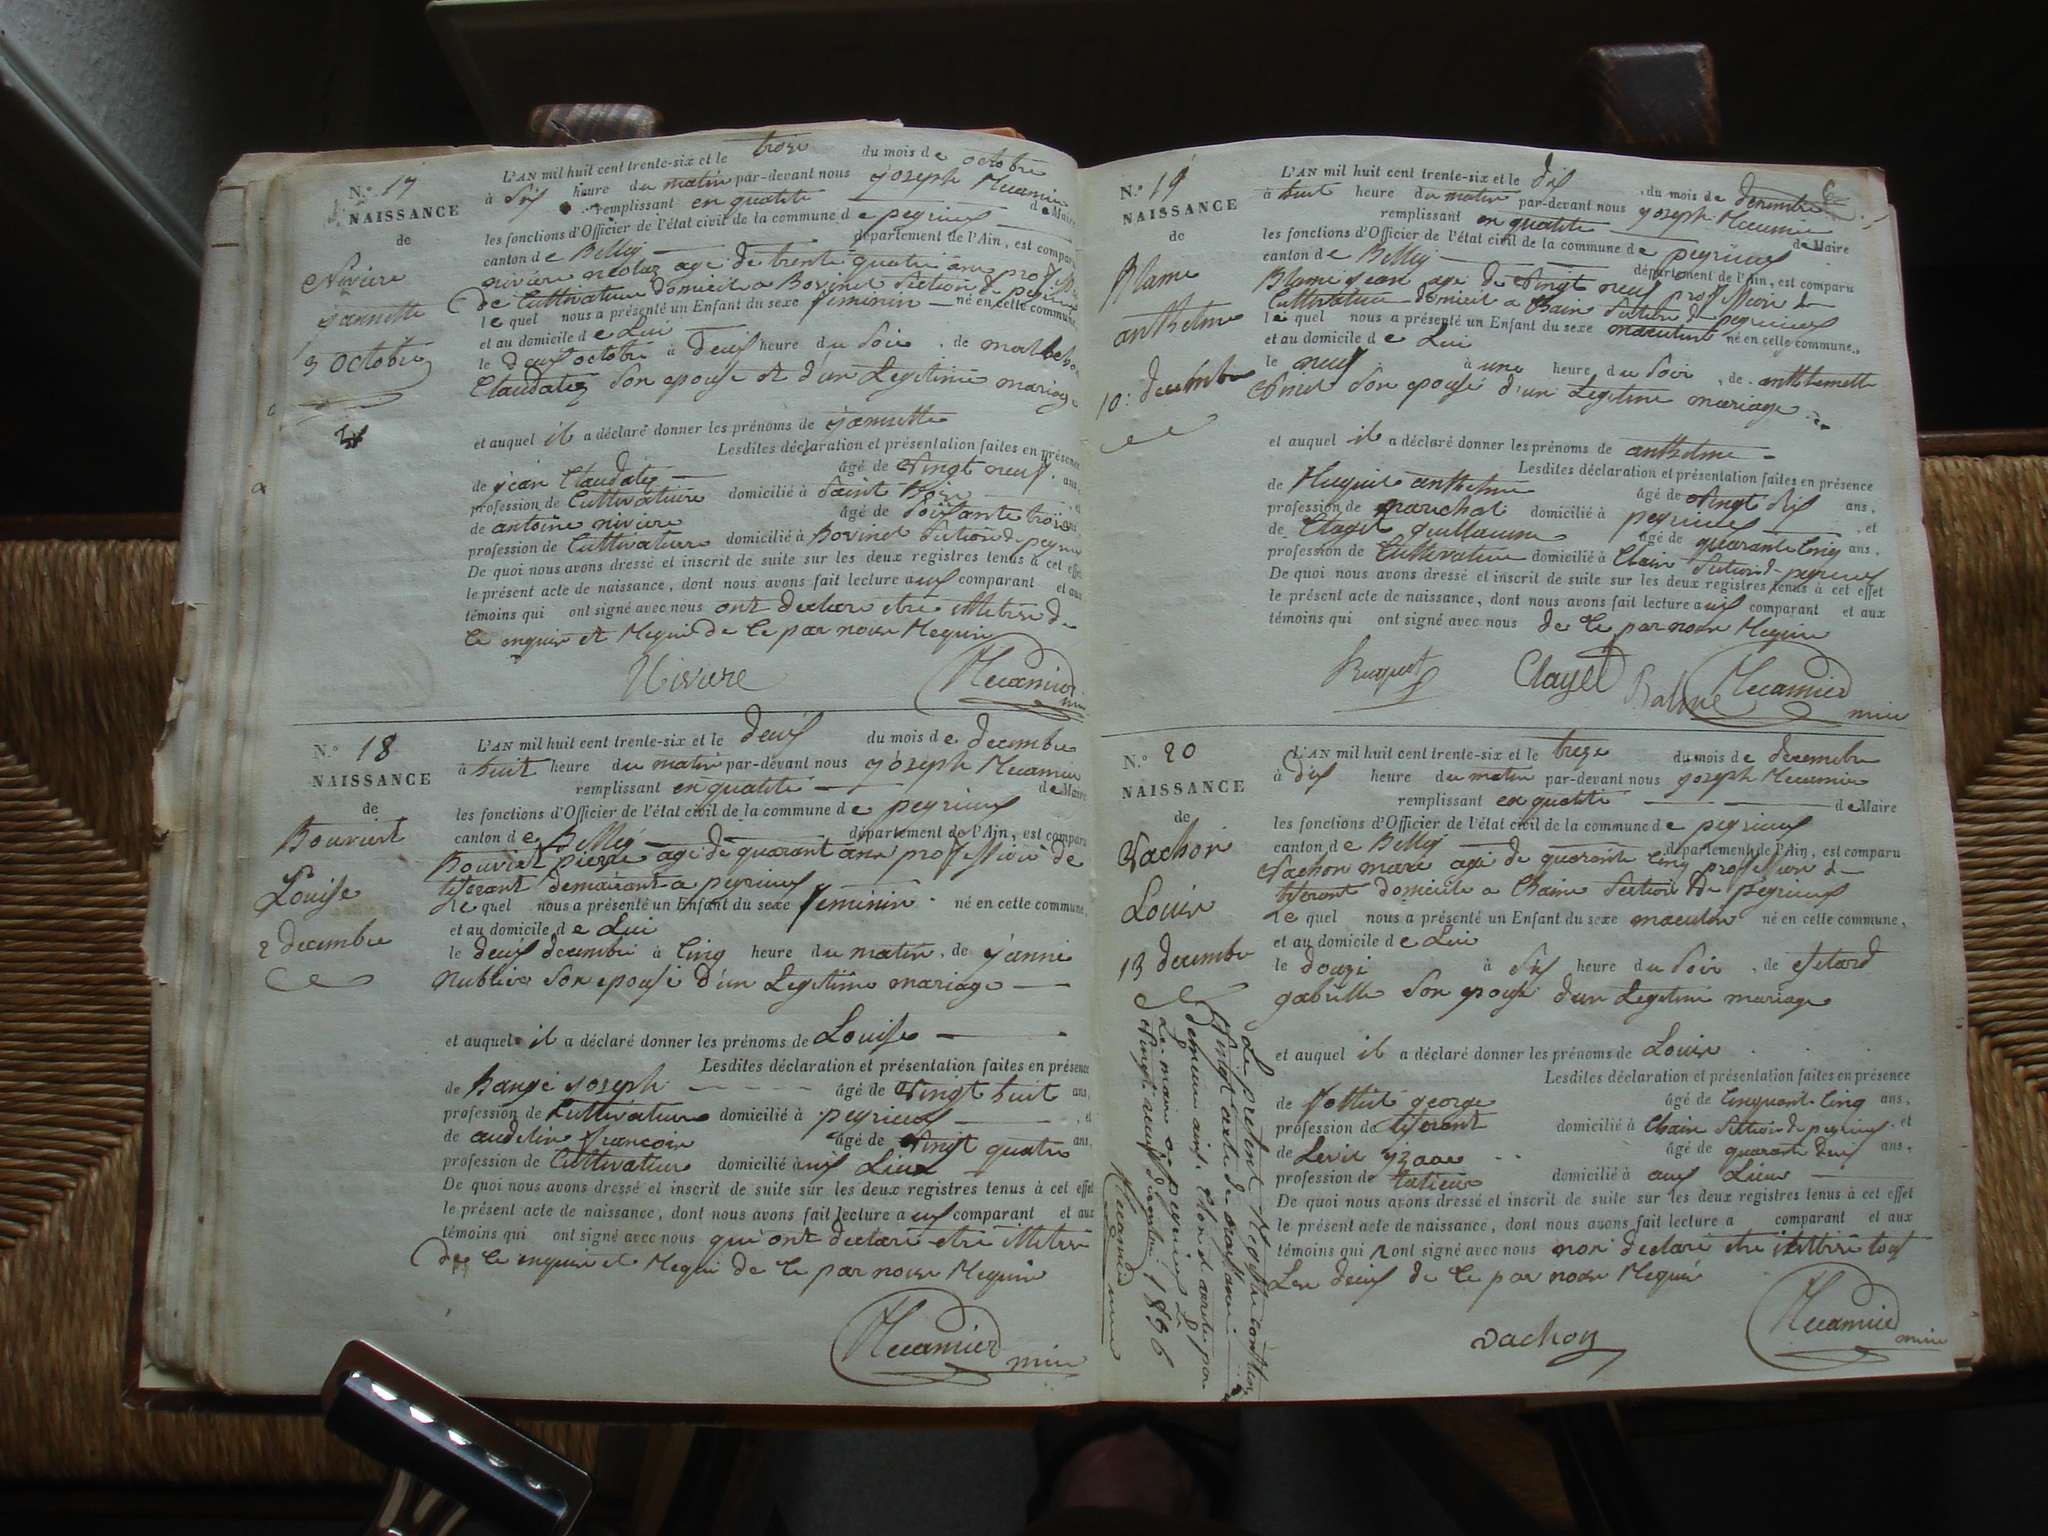 N.° 17
NAISSANCE
de
Nivière
jannette
3 octobre
L'AN mil huit cent trente-six et le trois du mois de octobre
à six heure du matin par-devant nous joseph Mecamier
remplissant en qualité de Maire
les fonctions d'Officier de l'état civil de la commune de peyrieux
canton de Belley département de l'Ain, est comparu
nivière nicolas age de trente quatre ans
de Cultivateur domicile a Bovinet Section de peyrieux
lequel nous a présenté un Enfant du sexe feminin né en cette commune,
et au domicile de Lui
le deux octobre à deux heure du Soir, de
Claudatez Son epouse et d'un Legitime mariage
et auquel il a déclaré donner les prénoms de jannette
Lesdites déclaration et présentation faites en présence
de jean Claudatez âgé de vingt neuf ans,
profession de Cultivateur domicilié à Saint et
de antoine nivière âgé de Soixante trois ans,
profession de Cultivateur domicilié à Bovinet Section de peyrieux
De quoi nous avons dressé et inscrit de suite sur les deux registres tenus à cet effet
le présent acte de naissance, dont nous avons fait lecture aux comparant et aux
témoins qui ont signé avec nous ont declare etre illetre de
ce enquis et Requi de ce par nous Requis
Nivière Mecamier
N.° 18
NAISSANCE
de
Bouvier
Louise
2 decembre
L'AN mil huit cent trente-six et le deux du mois de decembre
à huit heure du matin par-devant nous joseph Mecamier
remplissant en qualité de Maire
les fonctions d'Officier de l'état civil de la commune de peyrieux
canton de Belley département de l'Ain, est comparu
pierre agé de quarant ans proffession de
tiserant demeurant a peyrieux
lequel nous a présenté un Enfant du sexe feminin né en cette commune,
et au domicile de Lui
le deux decembre à cinq heure du matin, de janne
Son epouse d'un Legitime mariage
et auquel il a déclaré donner les prénoms de Louise
Lesdites déclaration et présentation faites en présence
de joseph âgé de vingt huit ans,
profession de Cultivateur domicilié à peyrieux, et
de francois âgé de vingt quatre ans,
profession de Cultivateur domicilié Lieux
De quoi nous avons dressé et inscrit de suite sur les deux registres tenus à cet effet
le présent acte de naissance, dont nous avons fait lecture aux comparant et aux
témoins qui ont signé avec nous qui ont declaré etre illetre
de ce enquis et Requi de ce par nous Requis
Mecamier
N.° 19
NAISSANCE
de
anthelme
10 decembre
L'AN mil huit cent trente-six et le dix du mois de decembre
à huit heure du matin par-devant nous joseph Mecamier
remplissant en qualité de Maire
les fonctions d'Officier de l'état civil de la commune de peyrieux
canton de Belley département de l'Ain, est comparu
jean age de vingt neuf proffession de
Cultivateur domicile a Chain Section de peyrieux
lequel nous a présenté un Enfant du sexe masculin né en cette commune,
et au domicile de Lui
le neuf à une heure du Soir, de anthelmette
Son epouse d'un Legitime mariage
et auquel il a déclaré donner les prénoms de anthelme
Lesdites déclaration et présentation faites en présence
de anthelme âgé de vingt six ans,
profession de marechal domicilié à peyrieux, et
de Clayet guillaume âgé de quarante cinq ans,
profession de Cultivateur domicilié à Chain Section de peyrieux
De quoi nous avons dressé et inscrit de suite sur les deux registres tenus à cet effet
le présent acte de naissance, dont nous avons fait lecture aux comparant et aux
témoins qui ont signé avec nous de ce par nous Requis
Clayet Balme Mecamier
N.° 20
NAISSANCE
de
Vachon
Louis
13 decembre
Le present Registre contien
vingt acte de naissance
Le maire de peyrieux Le
vingt neuf decembre 1836
Mecamier
L'AN mil huit cent trente-six et le treze du mois de decembre
à dix heure du matin par-devant nous joseph Mecamier
remplissant en qualité de Maire
les fonctions d'Officier de l'état civil de la commune de peyrieux
canton de Belley département de l'Ain, est comparu
Vachon marc agé de quarante cinq proffession de
tiserant domicile a Chain Section de peyrieux
lequel nous a présenté un Enfant du sexe masculin né en cette commune,
et au domicile de Lui
le douze à six heure du Soir, de
gabrielle Son epouse d'un Legitime mariage
et auquel il a déclaré donner les prénoms de Louis
Lesdites déclaration et présentation faites en présence
de george âgé de cinquant cinq ans,
profession de tiserant domicilié à Chain Section de peyrieux, et
de izaac âgé de quarante deux ans,
profession de domicilié à aux Lieux
De quoi nous avons dressé et inscrit de suite sur les deux registres tenus à cet effet
le présent acte de naissance, dont nous avons fait lecture a comparant et aux
témoins qui ont signé avec nous non declaré etre illetre tous
Les deux de ce par nous Requis
vachon Mecamier